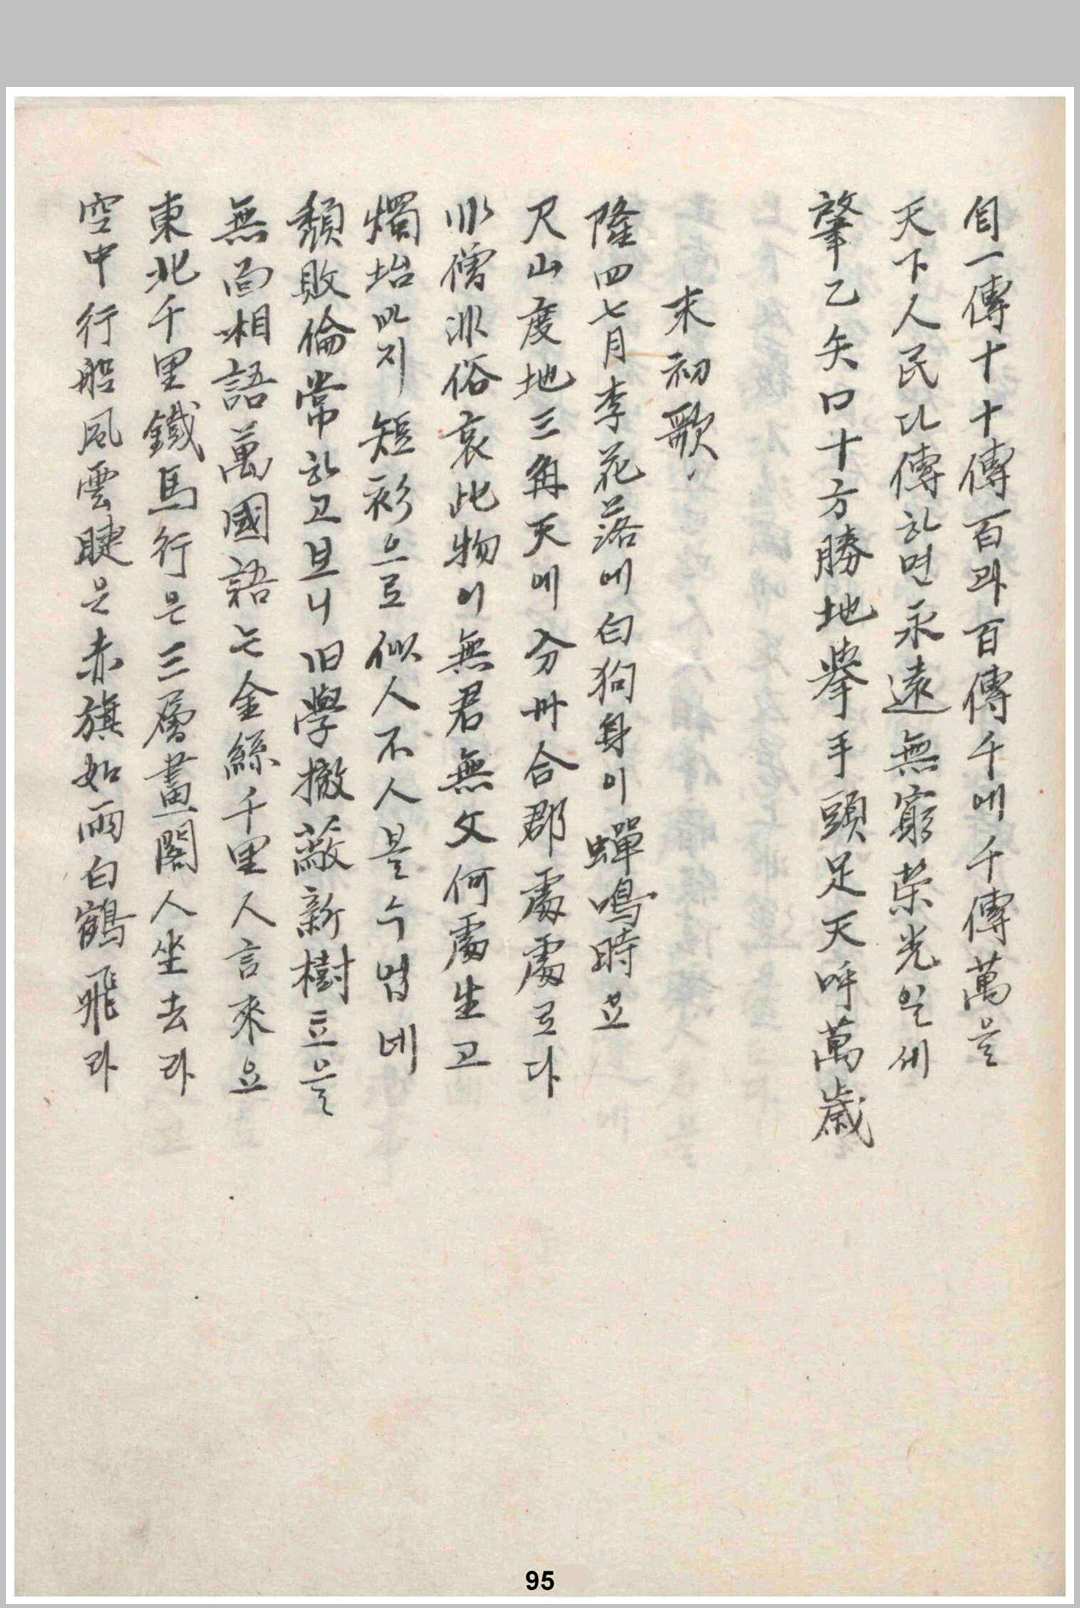 自一傳十十傳百과百傳千에千傳萬을
天下人民다傳하면永遠無窮荣光일세
肇乙矢口十方勝地擧手頭足天呼萬歲
末初歌
隆四七月李花落에白狗身이蟬鳴時요
尺山度地三角天에分州合郡處處로다
非僧非俗哀此物이無君無父何處生고
燭坮바지短衫으로似人不人볼수업네
頹敗倫常하고보니旧學撤蔽新樹立을
無面相語萬國語는金絲千里人言來요
東北千里鐵馬行은三層畫閣人坐去라
空中行船風雲睫은赤旗如雨白鶴飛라
95